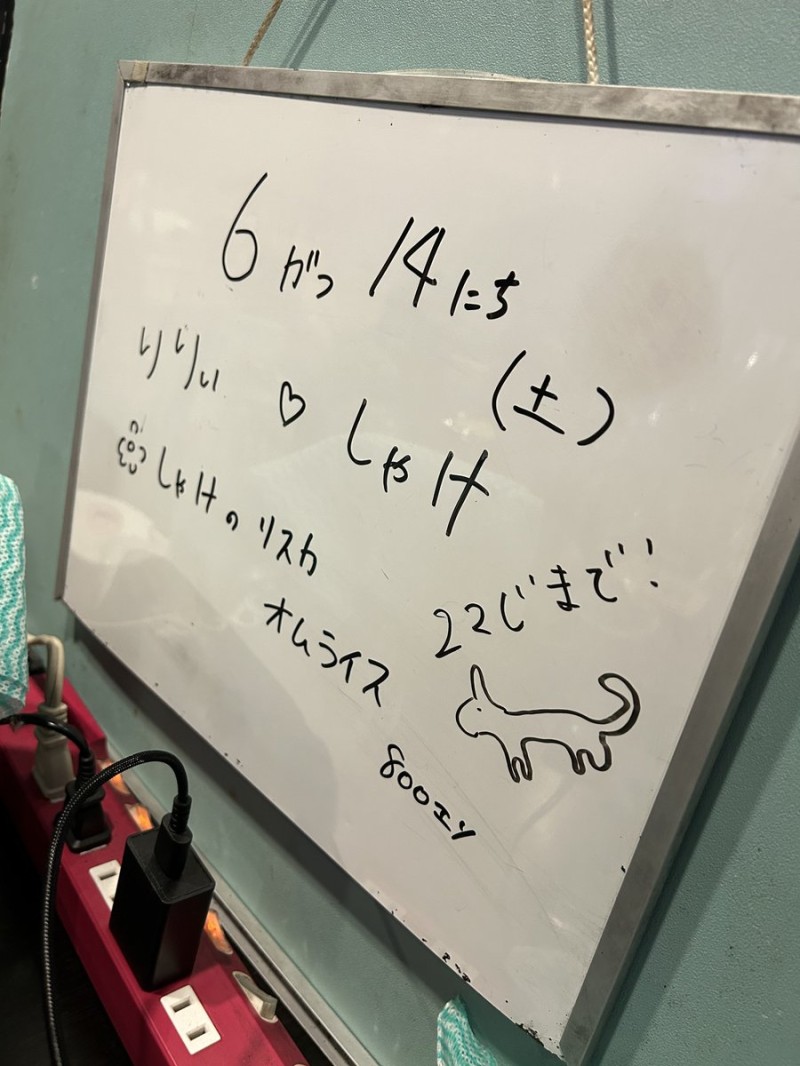 6がつ14にち
(土)
りりぃ ♡ しゃけ
しゃけのリスカ
オムライス
22じまで!
800エン